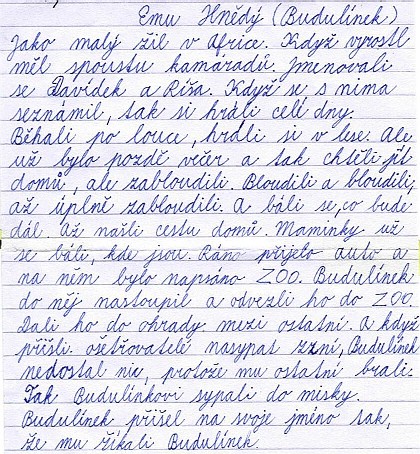 Emu Hnědý (Budulínek)
Jako malý žil v Africe. Když vyrostl
měl spoustu kamarádů. Jmenovali
se Davídek a Ríša. Když se s nima
seznámil, tak si hráli celí dny.
Běhali po louce, hráli si v lese. Ale
už bylo pozdě večer a tak chtěli jít
domů, ale zabloudili. Bloudili a bloudili
až úplně zabloudili. A báli se, co bude
dál. Až našli cestu domů. Maminky už
se báli, kde jsou. Ráno přijelo auto a
na něm bylo napsáno ZOO. Budulínek
do něj nastoupil a odvezli ho do ZOO.
Dali ho do ohrady mezi ostatní. A když
příšli ošetřovatelé nasypat zrní, Budulínek
nedostal nic, protože mu ostatní brali.
Tak Budulínkovi sypali do misky.
Budulínek přišel na svoje jméno tak,
že mu říkali Budulínek.